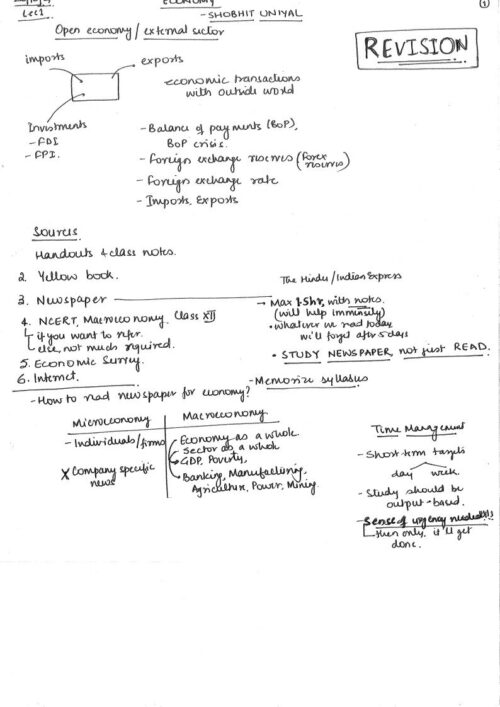 Lec 1
ECONOMY
- SHOBHIT UNIYAL
①
Open economy / external sector
REVISION
imports
exports
economic transactions
with outside world
Investments
- FDI
- FPI.
- Balance of payments (BoP),
BoP crisis.
- Foreign exchange reserves (forex
reserves)
- Foreign exchange rate
- Imports, Exports
Sources
Handouts & class notes.
2. Yellow book.
The Hindu / Indian Express
3. Newspaper
→ Max 1.5hr, with notes.
(will help immensily)
• whatever we read today,
we'll forget after 5 days
• STUDY NEWSPAPER, not just READ.
4. NCERT, Macroeconomy. Class XII
if you want to refer.
else, not much required.
5. Economic Survey.
6. Internet.
- Memorize syllabus
- How to read newspaper for economy?
Microeconomy
- Individuals/firms
X Company specific
news
Macroeconomy
Economy as a whole.
Sector as a whole
GDP, Poverty,
Banking, Manufacturing,
Agriculture, Power, Mining.
Time Management
- Short term targets
day week.
- Study should be
output-based.
- Sense of urgency needed!!!
then only, it'll get
done.